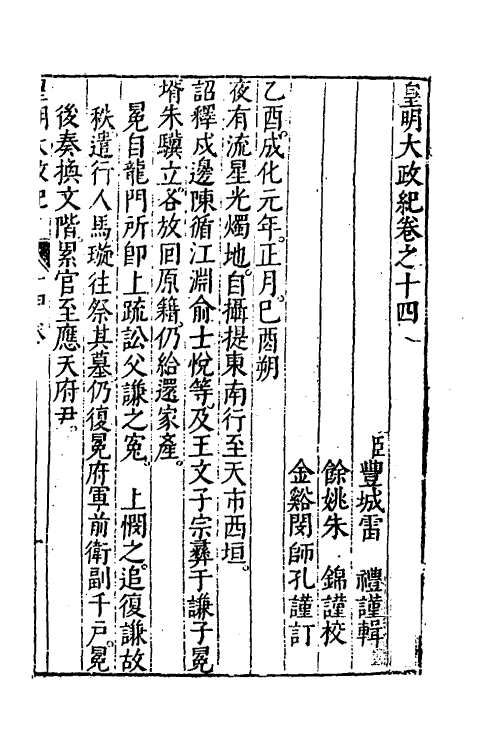 皇明大政紀卷之十四
臣豐城雷 禮謹輯
餘姚朱 錦謹校
金谿閔師孔謹訂
乙酉。成化元年。正月。己酉朔
夜有流星光燭地。自攝提東南行至天市西垣。
詔釋戍邊陳循江淵俞士悅等。及王文子宗彝于謙子冕
壻朱驥立各放回原籍。仍給還家產。
冕自龍門所即上疏訟父謙之寃。 上憫之。追復謙故
秩遣行人馬璇往祭其墓仍復冕府軍前衛副千戶。冕
後奏換文階累官至應天府尹。
皇明大政紀